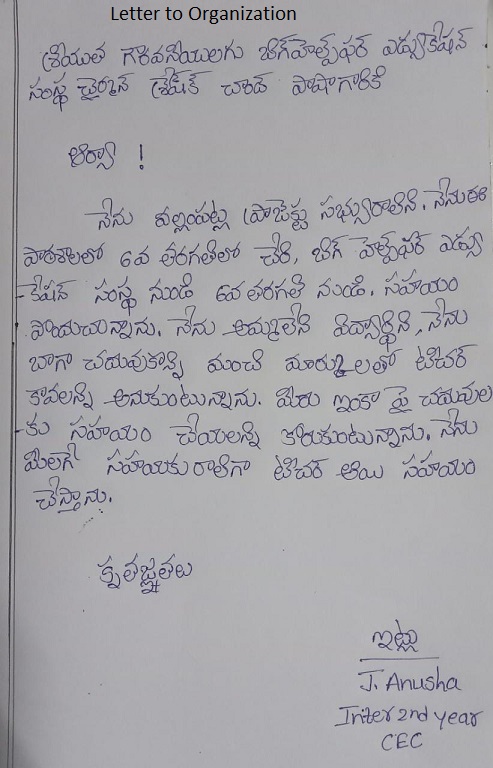 Letter to Organization
శ్రీయుత గౌరవనీయులగు బిగ్‌హెల్ప్‌ఫర్ ఎడ్యుకేషన్
సంస్థ ఛైర్మాన్ శ్రీషేక్ చాంద్ పాషాగారికి
ఆర్యా !
నేను వల్లంపట్ల ప్రాజెక్టు సభ్యురాలిని. నేను ఈ
పాఠశాలలో 6వ తరగతిలో చేరి, బిగ్ హెల్ప్‌ఫర్ ఎడ్యు
-కేషన్ సంస్థ నుండి 6వ తరగతి నుండి. సహాయం
పొందుచున్నాను. నేను అమ్మలేని విద్యార్థిని, నేను
బాగా చదువుకొన్ని మంచి మార్కులతో టీచర్
కావలన్ని అనుకుంటున్నాను. మీరు ఇంకా పై చదువుల
-కు సహాయం చేయలన్ని కోరుకుంటున్నాను. నేను
మీలాగే సహాయకురాలిగా టీచర్ అయి సహాయం
చేస్తాను.
కృతజ్ఞతలు
ఇట్లు
J. Anusha
Inter 2nd year
CEC